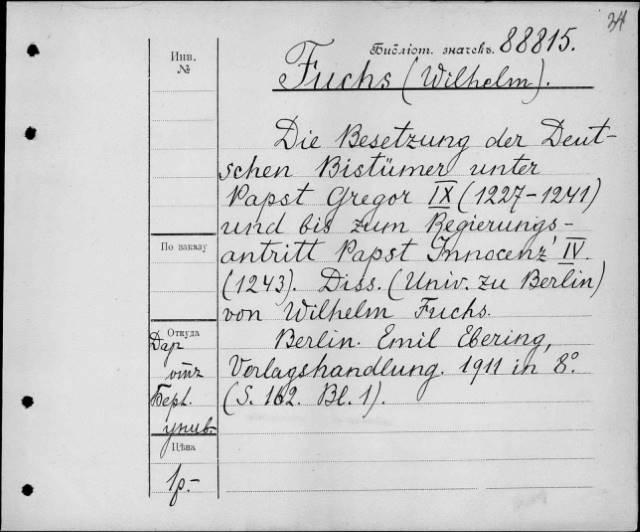 34
Библіот. значекъ. 88815.
Инв.
№
Fuchs (Wilhelm).
Die Besetzung der Deut-
schen Bistümer unter
Papst Gregor IX (1227-1241)
und bis zum Regierungs-
antritt Papst Innocenz' IV.
(1243). Diss. (Univ. zu Berlin)
von Wilhelm Fuchs.
Berlin. Emil Ebering,
Verlagshandlung. 1911 in 8°
(S. 162. Bl. 1).
По заказу
Откуда
Дар
отъ
Берл.
унив.
Цѣна
1р.-